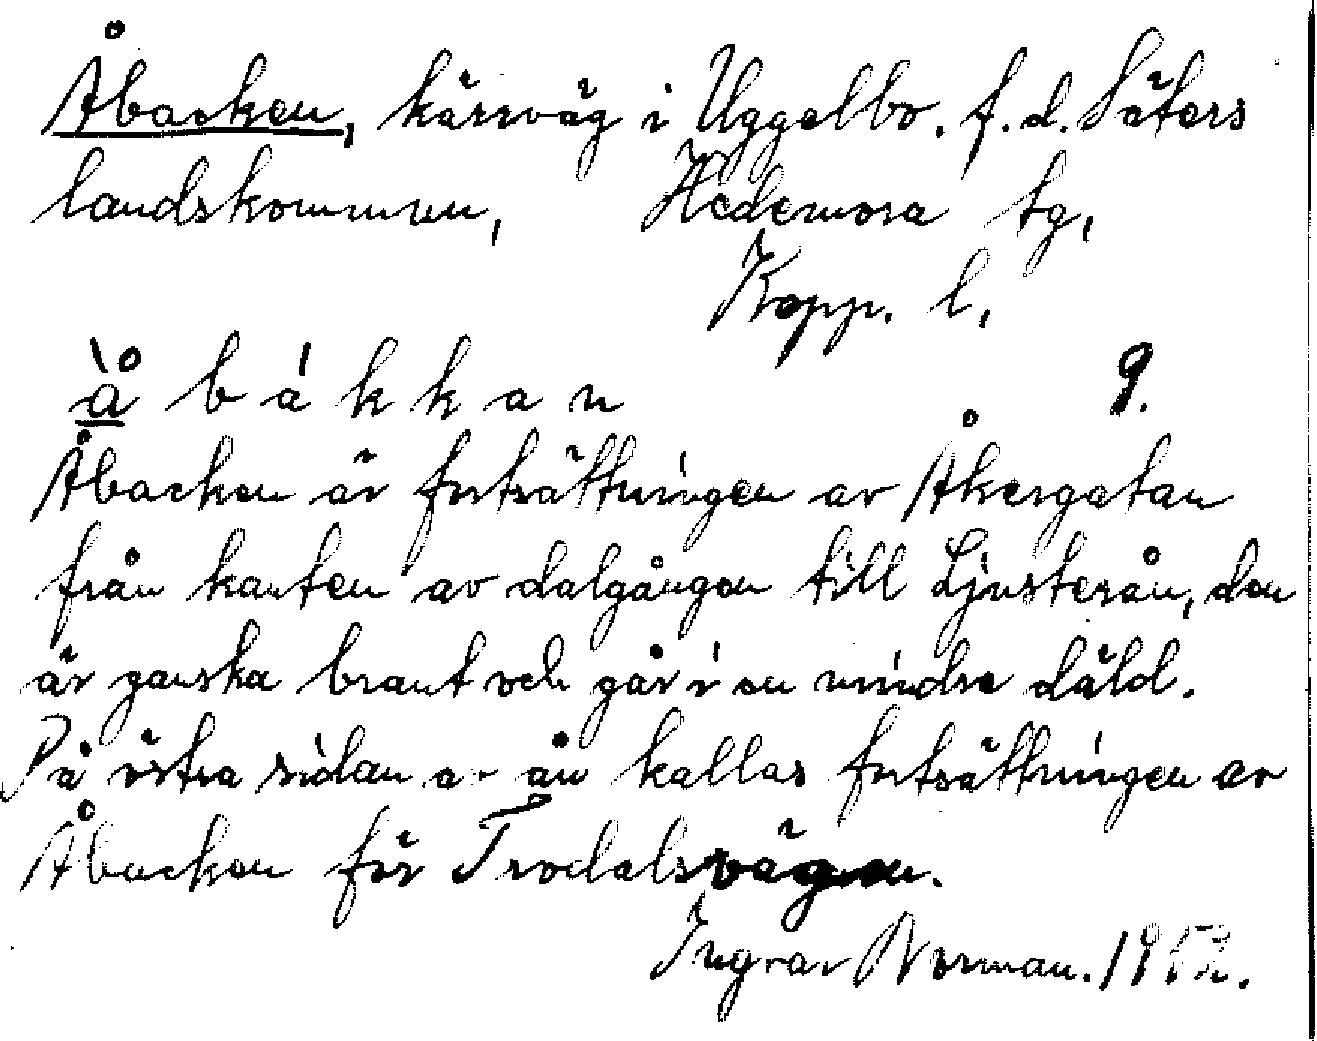 Åbacken, kärrväg i Uggelbo. f. d. Säters
landskommun, Hedemora tg,
Kopp. l,
å̀ b á k k a n 9.
Åbacken är fortsättningen av Åkergatan
från kanten av dalgången till Ljusterån, den
är ganska brant och går i en mindre däld.
På östra sidan av ån kallas fortsättningen av
Åbacken för Trodalsvägen.
Ingvar Norman. 1952.